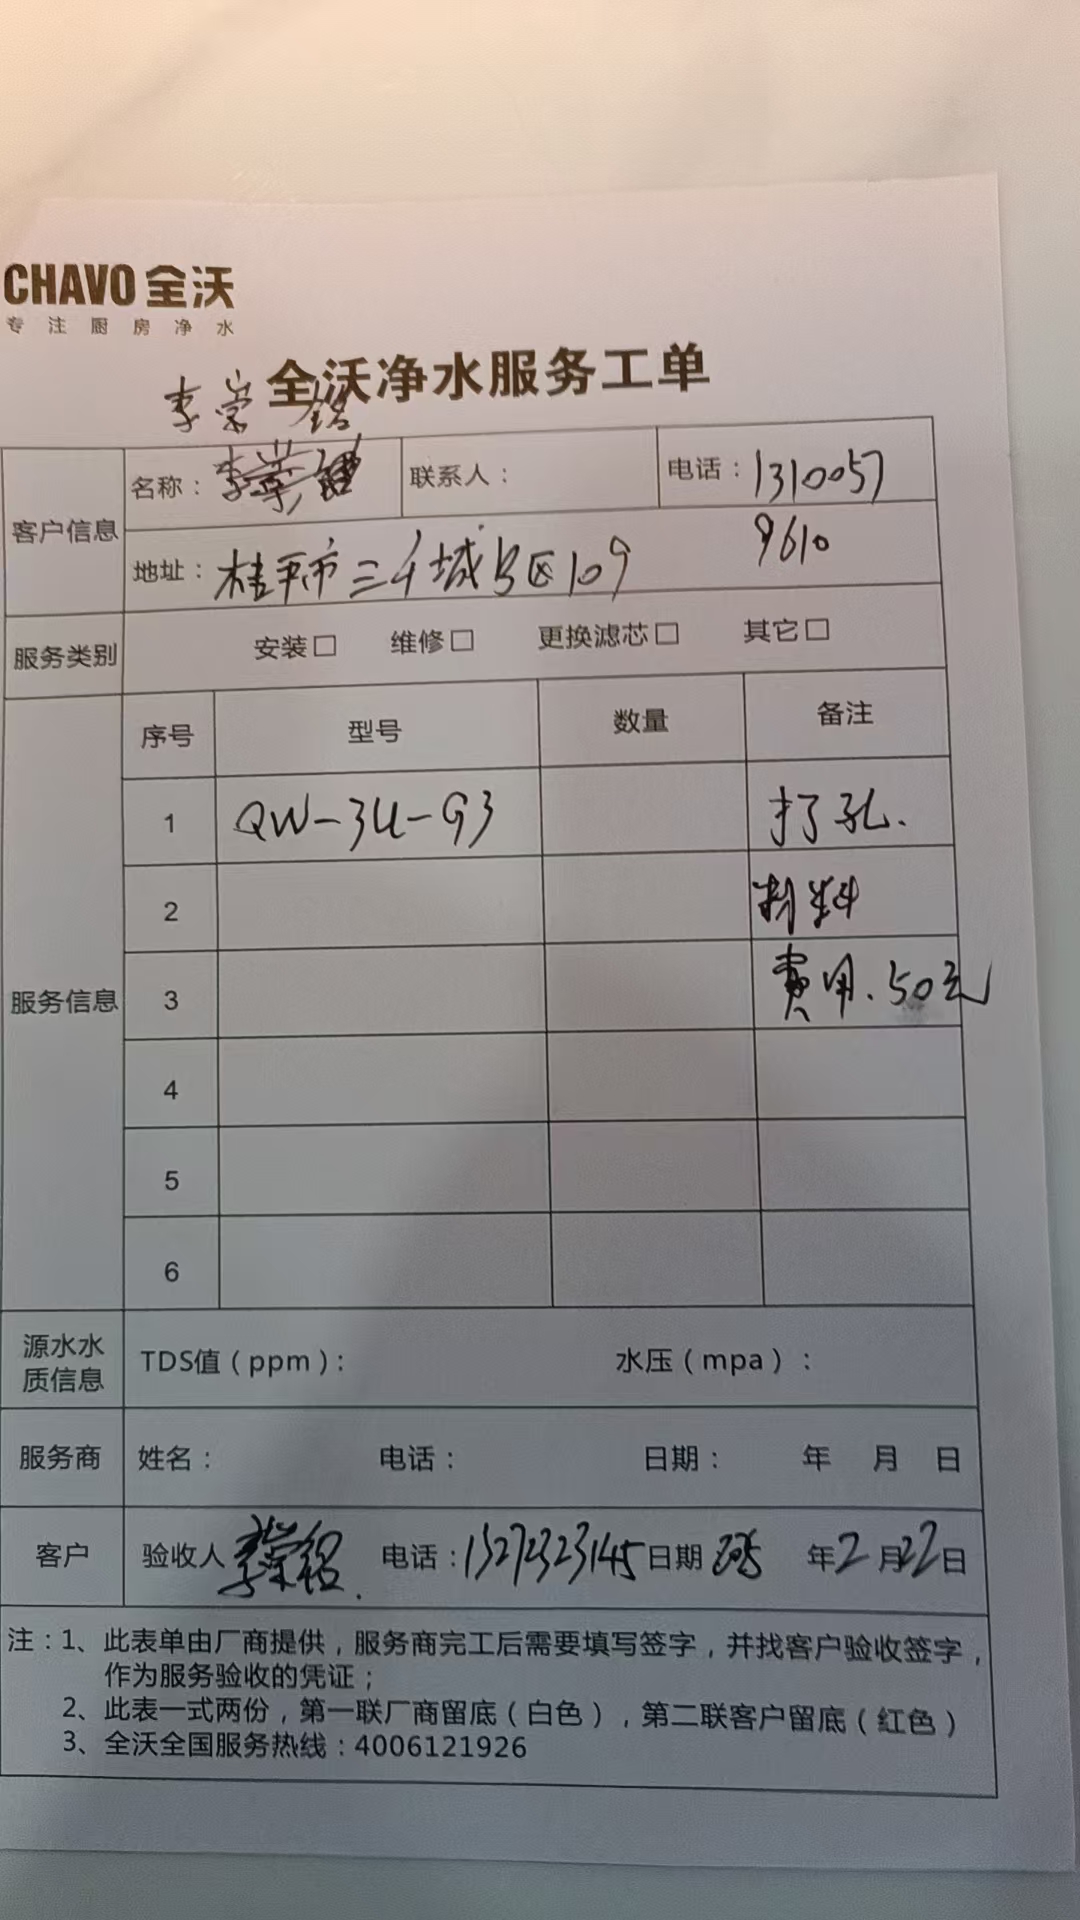 CHAVO 全沃
专注厨房净水
全沃净水服务工单
李荣铭
客户信息
名称：
联系人：
电话：1310057
9610
地址：桂平市三千城B区109
服务类别
安装□ 维修□ 更换滤芯□ 其它□
服务信息
序号 型号 数量 备注
1 QW-3U-G3 打孔.
2 材料
3 费用.50元
4
5
6
源水水质信息
TDS值（ppm）： 水压（mpa）：
服务商
姓名： 电话： 日期： 年 月 日
客户
验收人 李荣铭. 电话：13272323145 日期 2025 年2月22日
注：1、此表单由厂商提供，服务商完工后需要填写签字，并找客户验收签字，
作为服务验收的凭证；
2、此表一式两份，第一联厂商留底（白色），第二联客户留底（红色）
3、全沃全国服务热线：4006121926